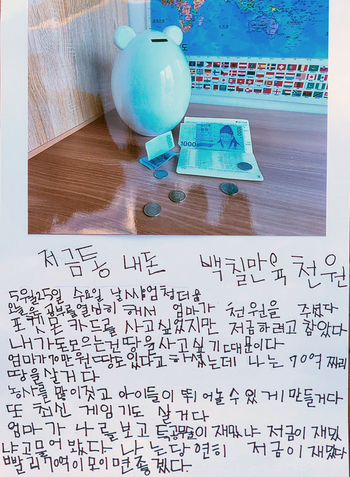 1000
저금통 내돈 백칠만육천원
5월25일 수요일 날씨 엄청더움
오늘은 공부를 열심히 해서 엄마가 천원을 주셨다
포켓몬 카드를 사고 싶었지만 저금하려고 참았다
내가 돈모으는건 땅을 사고 싶기때문이다
엄마가 70만원 땅도있다고 하셨는데 나는 70억 짜리
땅을 살거다
농사를 많이 짓고 아이들이 뛰어놀수 있게 만들거다
또 최신 게임기도 살거다
엄마가 나를보고 공놀이 재밌냐 저금이 재밌
냐고 물어 봤다 나는 당연히 저금이 재밌다
빨리 70억이 모이면 좋겠다.